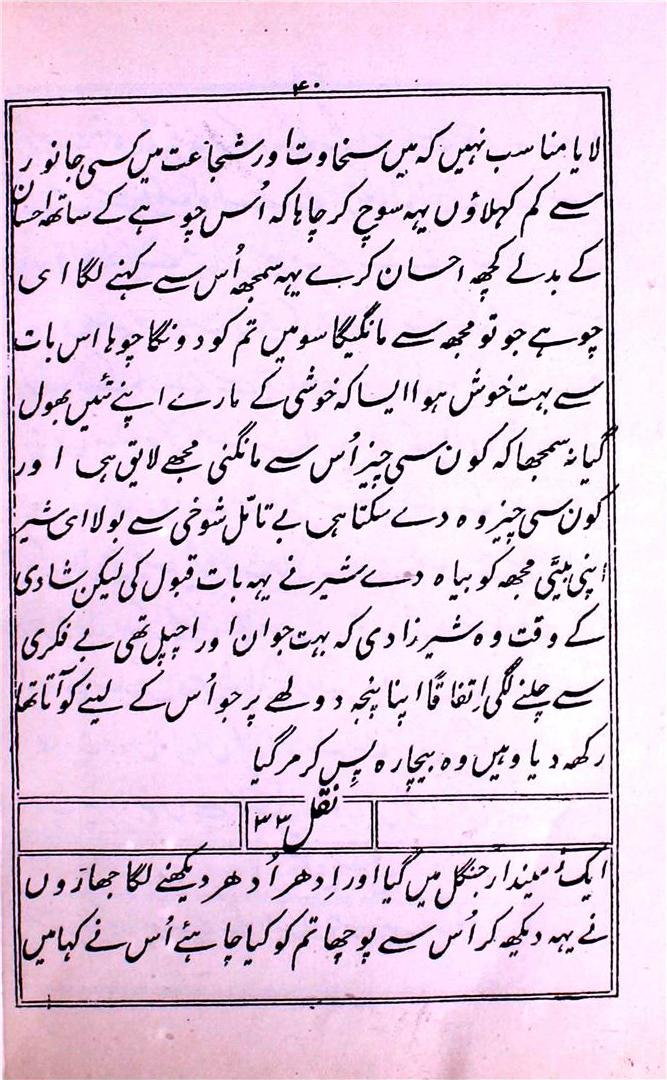 ۴۰
لایا مناسب نہیں کہ میں سخاوت اور شجاعت میں کسی جانور
سے کم کہلاؤں یہہ سوچ کر چاہا کہ اُس چوہے کے ساتھہ احسان
کے بدلے کچھہ احسان کرے یہہ سمجھہ اُس سے کہنے لگا ای
چوہے جو تو مجھہ سے مانگیگا سو میں تم کو دونگا چوہا اس بات
سے بہت خوش ہوا ایسا کہ خوشی کے مارے اپنے تئیں بھول
گیا نہ سمجھا کہ کون سی چیز اُس سے مانگنی مجھے لایق ہی اور
کون سی چیز وہ دے سکتا ہی بے تامّل شوخی سے بولا ای شیر
اپنی بیٹی مجھہ کو بیاہ دے شیر نے یہہ بات قبول کی لیکن شادی
کے وقت وہ شیرزادی کہ بہت جوان اور اچپل تھی بے فکری
سے چلنے لگی اِتفاقاً اپنا پنجہ دولھے پر جو اُس کے لینے کو آتا تھا
رکھہ دیا وہیں وہ بیچارہ پِس کر مر گیا
نقل ۳۳
ایک زمیندار جنگل میں گیا اور اِدھر اُدھر دیکھنے لگا جھاڑوں
نے یہہ دیکھہ کر اُس سے پوچھا تم کو کیا چاہئے اُس نے کہا میں